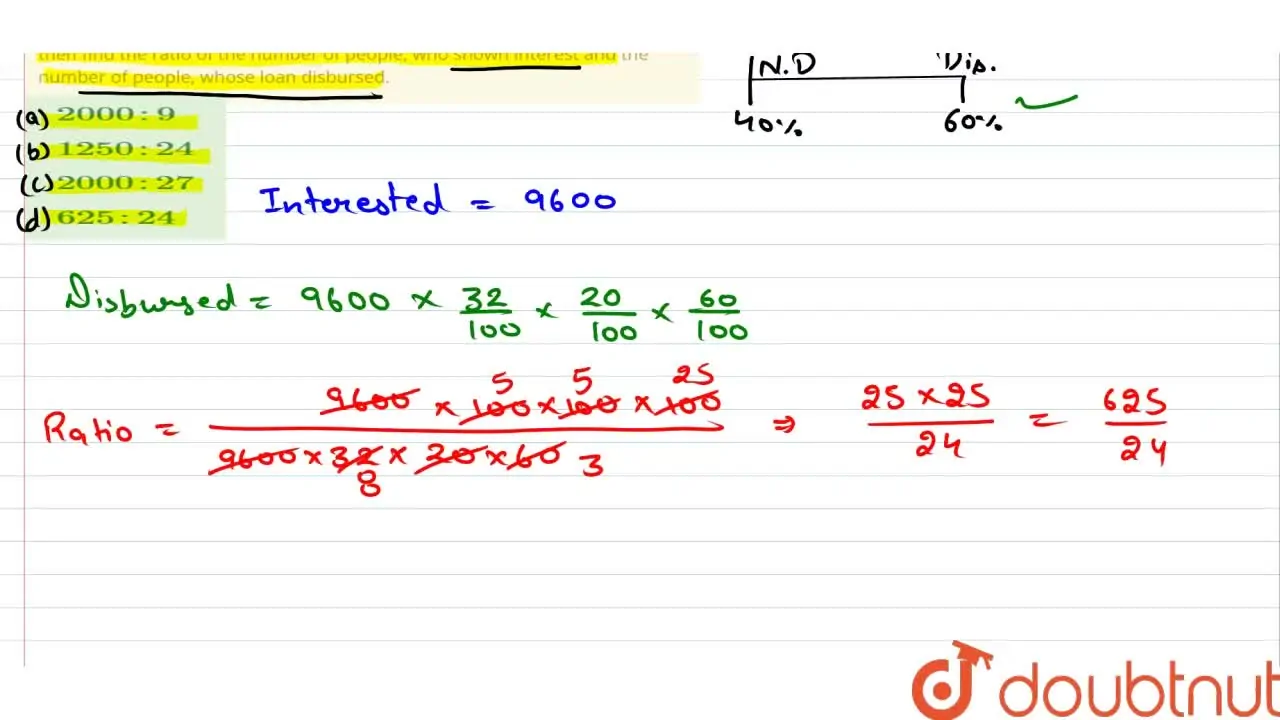 then find the ratio of the number of people, who shown interest and the
number of people, whose loan disbursed.
N.D Dis.
40% 60%
(a) 2000 : 9
(b) 1250 : 24
(c) 2000 : 27
(d) 625 : 24
Interested = 9600
Disbursed = 9600 × 32/100 × 20/100 × 60/100
5 5 25
Ratio = 9600 × 100 × 100 × 100 / 9600 × 32 × 20 × 60 3 ⇒ 25 × 25 / 24 = 625 / 24
8
doubtnut